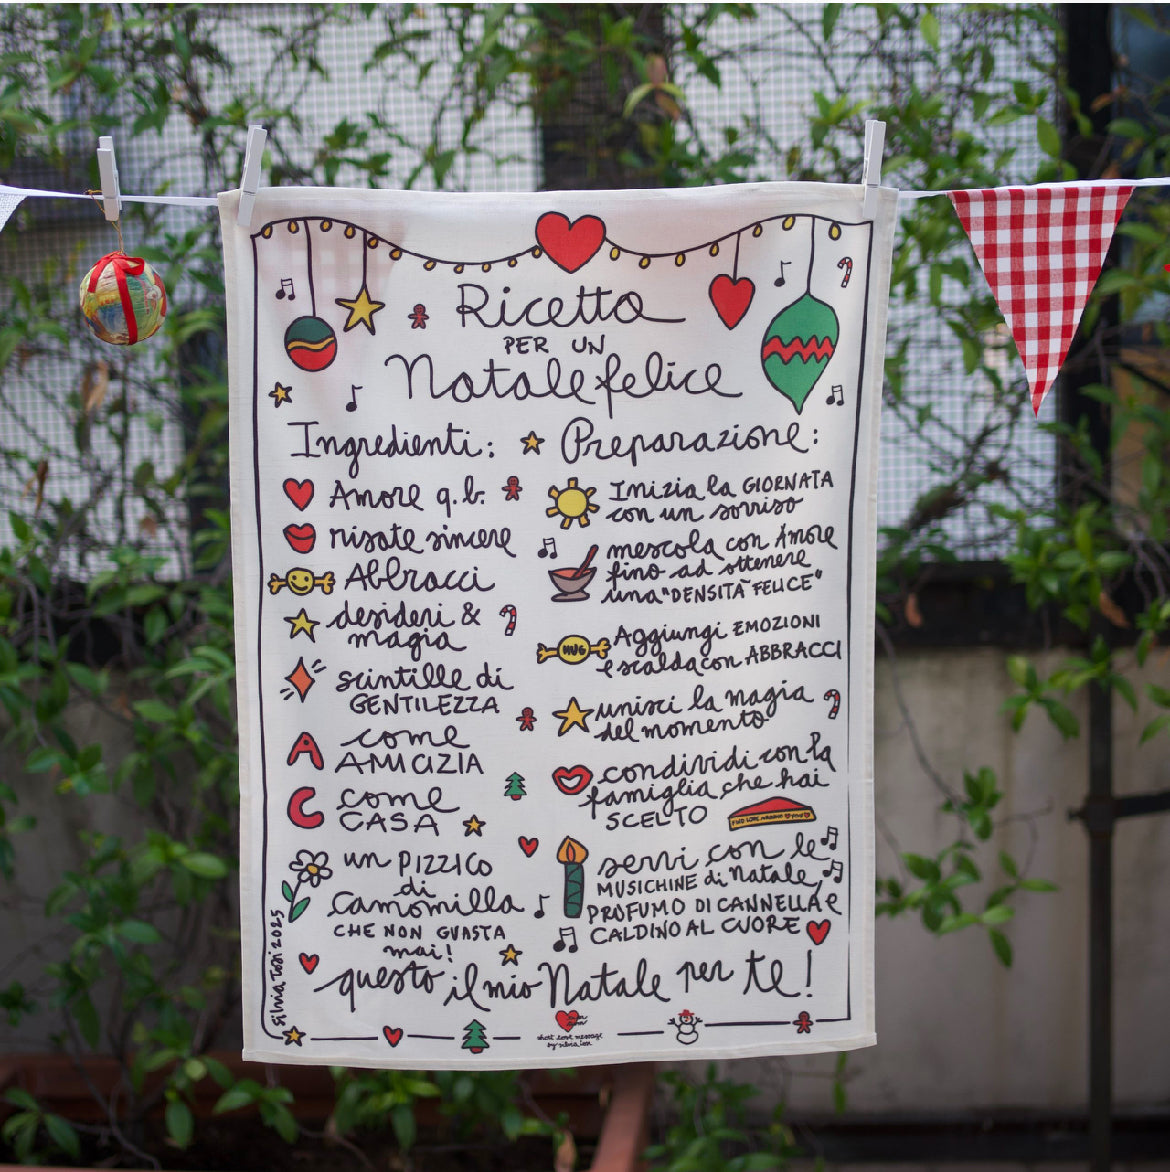 Ricetta
PER UN
Natale felice
Ingredienti:
Amore q.b.
risate sincere
Abbracci
desideri &
magia
scintille di
GENTILEZZA
A come
AMICIZIA
C come
CASA
un PIZZICO
di
camomilla
CHE NON GUASTA
mai!
Preparazione:
Inizia la GIORNATA
con un sorriso
mescola con Amore
fino ad ottenere
una "DENSITÀ FELICE"
HUG
Aggiungi EMOZIONI
e scalda con ABBRACCI
unisci la magia
del momento
condividi con la
famiglia che hai
SCELTO
servi con le
MUSICHINE di Natale,
PROFUMO DI CANNELLA e
CALDINO AL CUORE
questo il mio Natale per te!
Silvia Tosi 2025
short love message